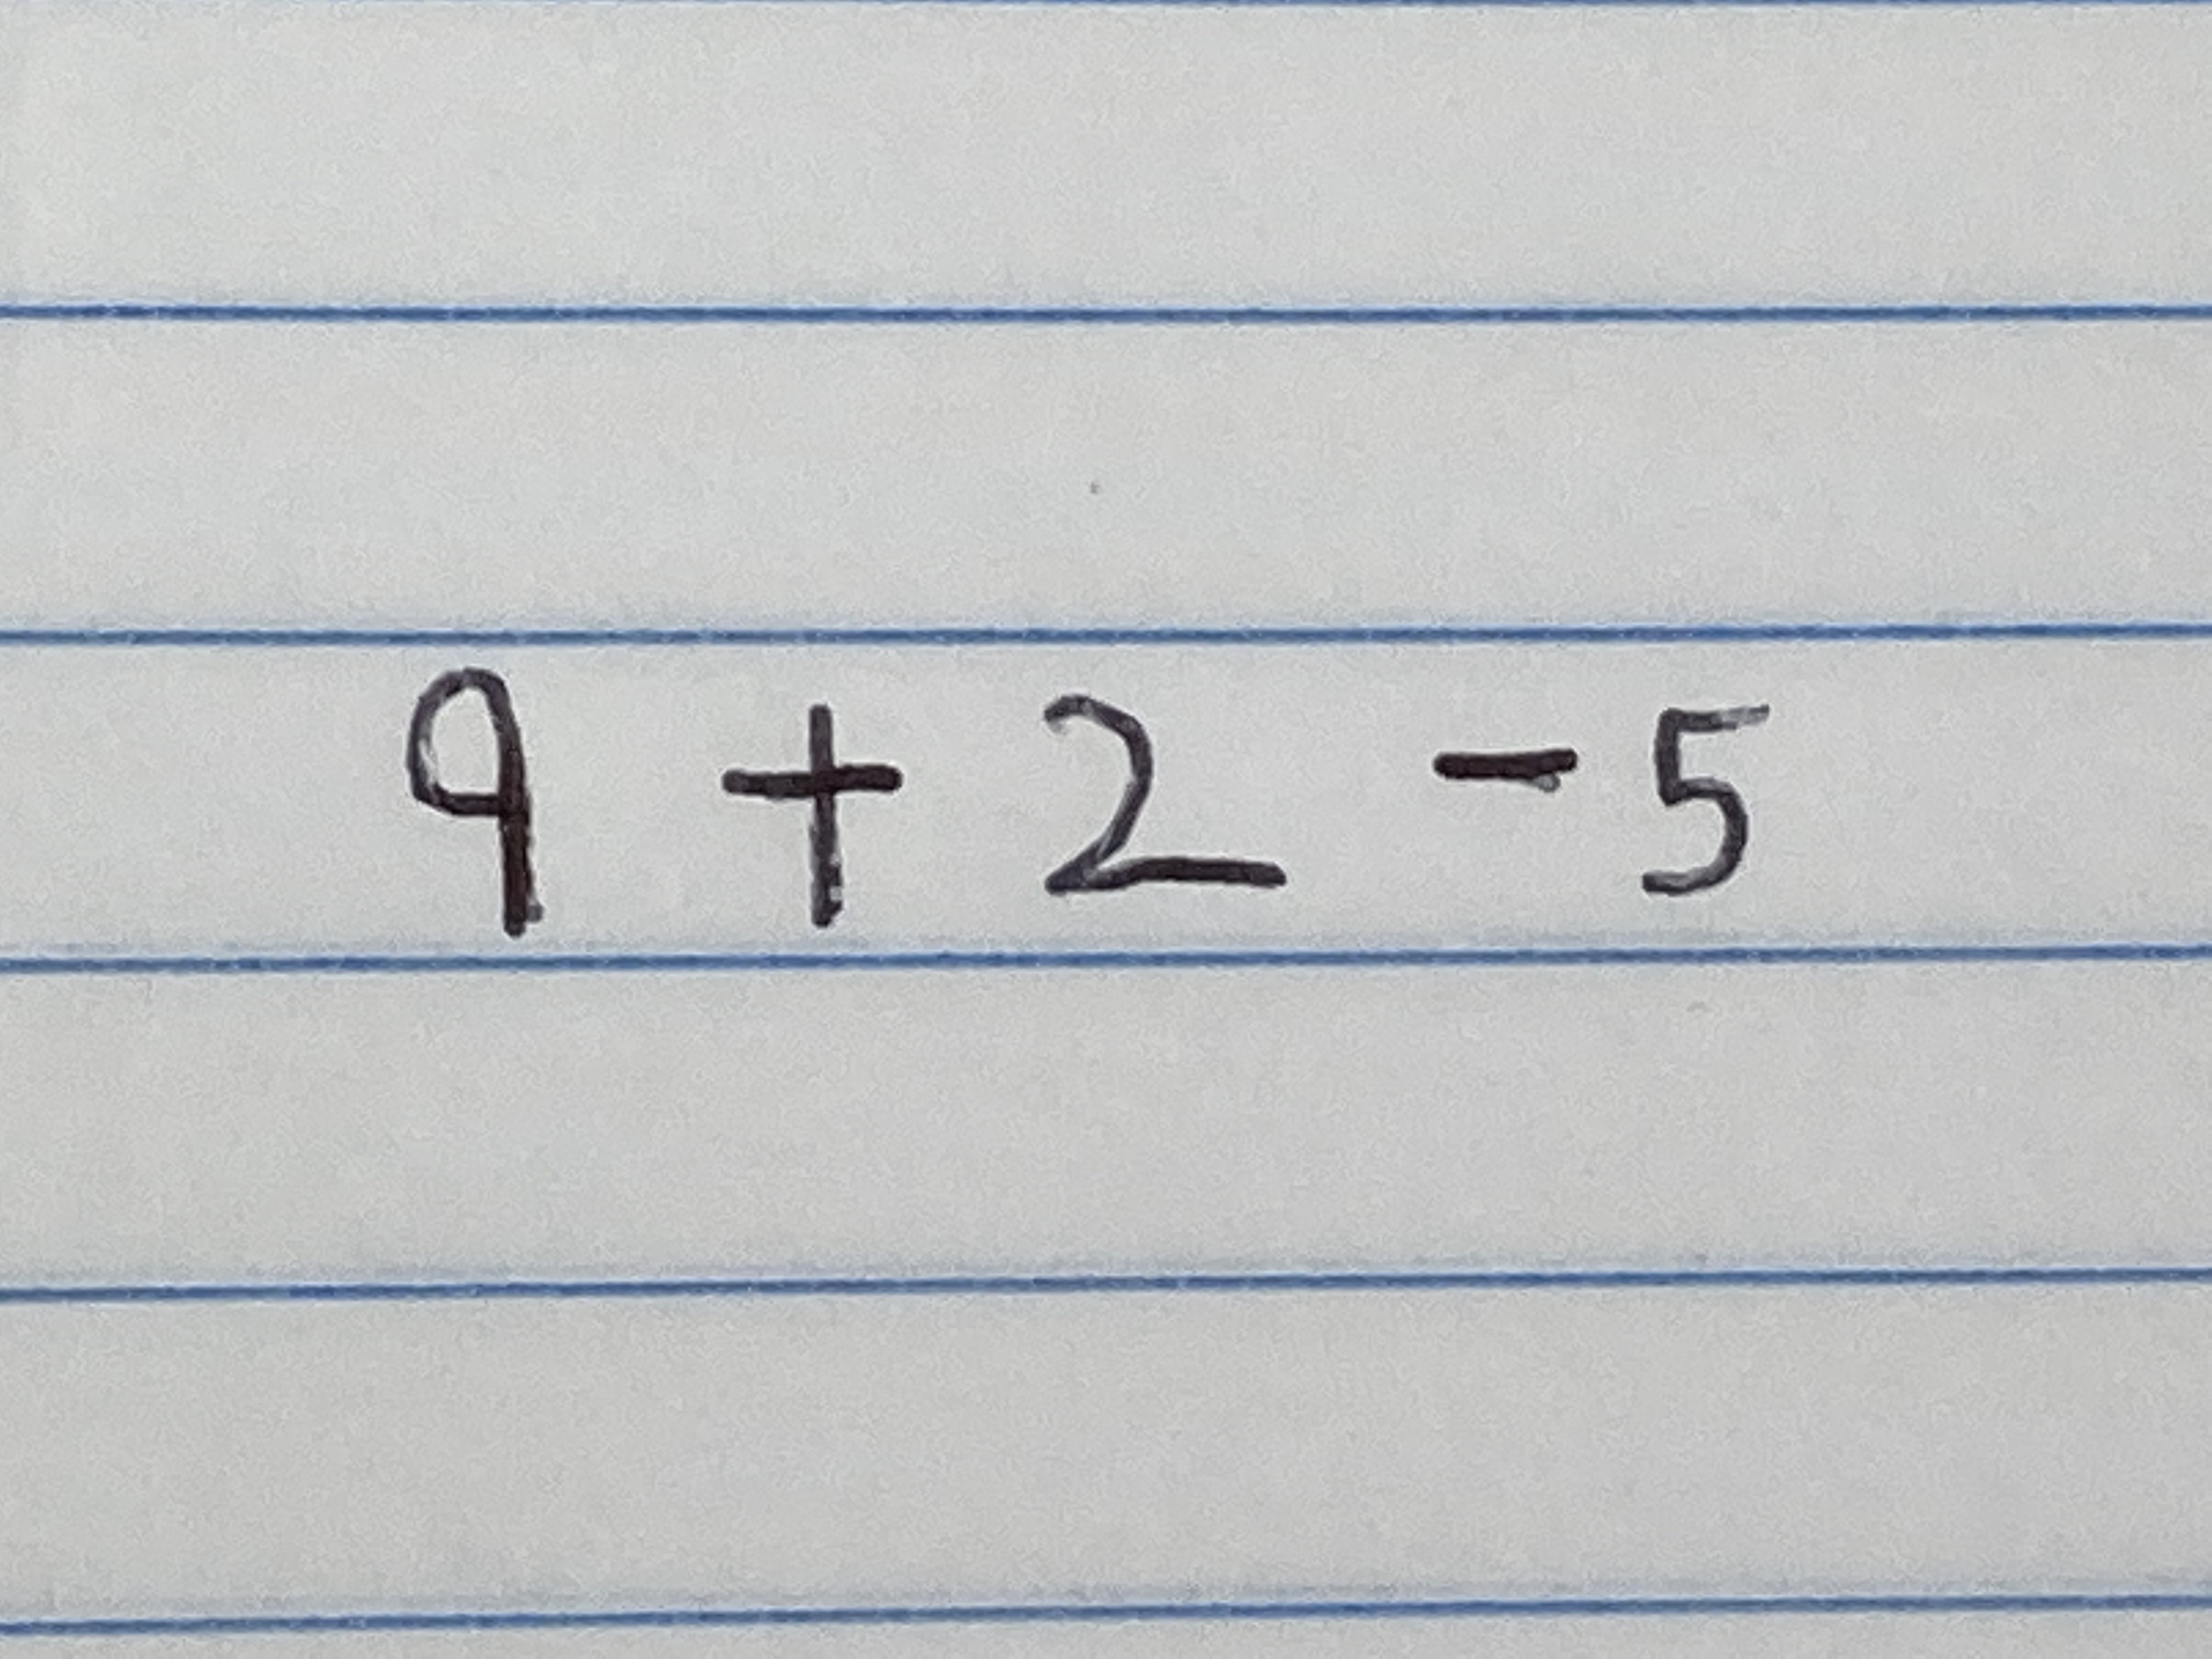 9 + 2 - 5